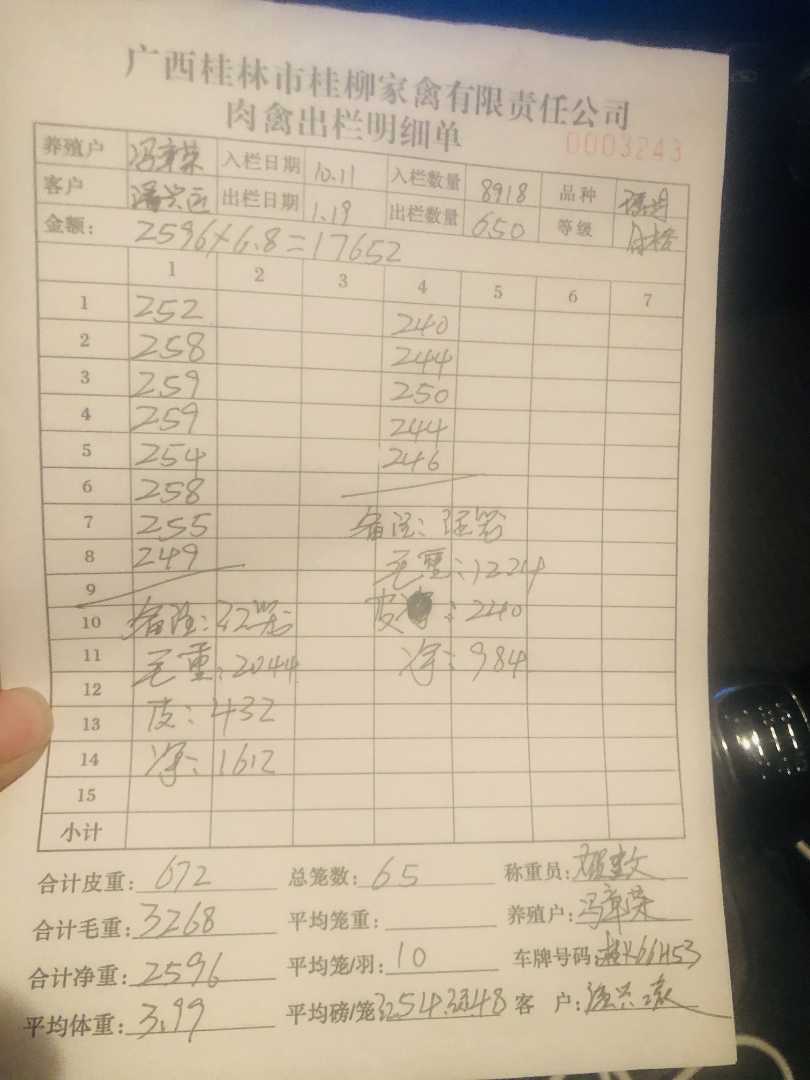 广西桂林市桂柳家禽有限责任公司
肉禽出栏明细单
0003243
养殖户 冯章荣 入栏日期 10.11 入栏数量 8918 品种
客户 出栏日期 1.19 出栏数量 650 等级 合格
金额: 2596×6.8=17652
1 2 3 4 5 6 7
1 252 240
2 258 244
3 259 250
4 259 244
5 254 246
6 258
7 255 备注:
8 249 毛重:1224
9 皮:240
10 备注:
11 毛重:2044 净:984
12
13 皮:432
14 净:1612
15
小计
合计皮重: 672 总笼数: 65 称重员:
合计毛重: 3268 平均笼重: 养殖户: 冯章荣
合计净重: 2596 平均笼/羽: 10 车牌号码:
平均体重: 3.99 平均磅/笼 客户: